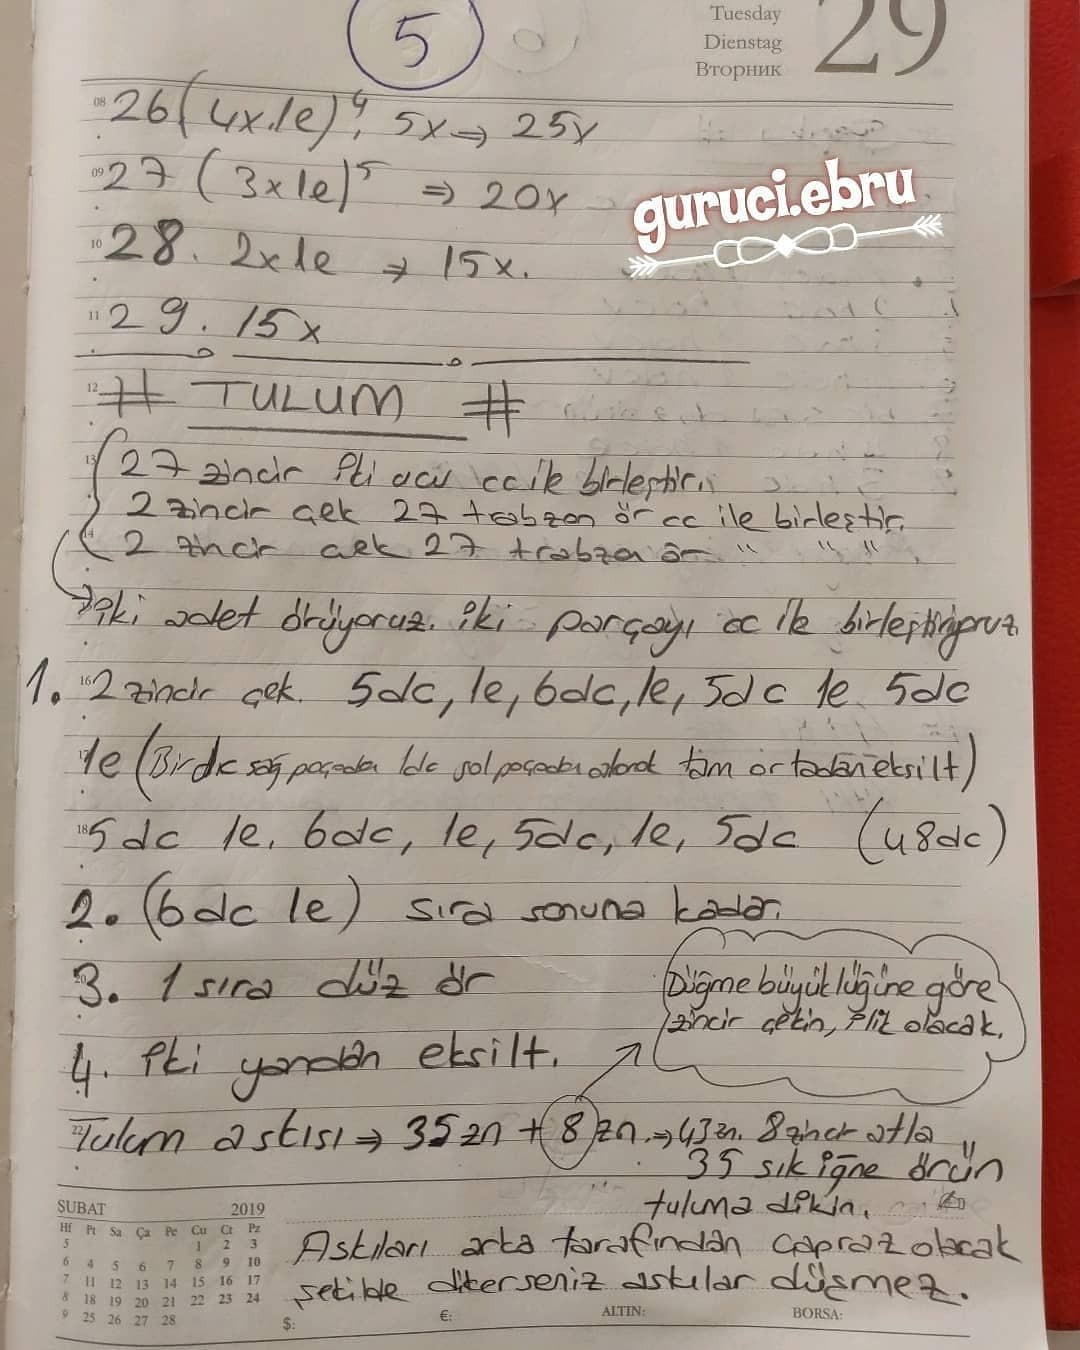 5
Tuesday
Dienstag
Вторник
29
08 26(4x.1e)4, 5x ⇒ 25x
09 27 (3x1e)5 ⇒ 20x
guruci.ebru
10 28. 2x1e → 15x.
11 29. 15x
12 # TULUM #
13 27 zincir İki ucu cc ile birleştir.
2 zincir çek 27 trabzan ör cc ile birleştir.
14 2 zincir çek 27 trabzan ör " " "
İki adet örüyoruz. iki parçayı cc ile birleştiriyoruz.
1. 16 2 zincir çek. 5dc, 1e, 6dc, 1e, 5dc 1e 5dc
17 1e (Bir dc sağ paçadan 1dc sol paçadan alarak tam ortadan eksilt)
18 5 dc 1e, 6dc, 1e, 5dc, 1e, 5dc (48dc)
2. (6dc 1e) sıra sonuna kadar.
3. 1 sıra düz ör
Düğme büyüklüğüne göre
zincir çekin, ilik olacak.
4. İki yandan eksilt.
22 Tulum askısı ⇒ 35 zn + 8 zn. ⇒ 43 zn. 8 zincir atla
35 sık iğne örün
tuluma dikin.
Askıları arka tarafından çapraz olacak
şekilde dikerseniz askılar düşmez.
ŞUBAT 2019
Hf Pt Sa Ça Pe Cu Ct Pz
5 1 2 3
6 4 5 6 7 8 9 10
7 11 12 13 14 15 16 17
8 18 19 20 21 22 23 24
9 25 26 27 28
$: €: ALTIN: BORSA: